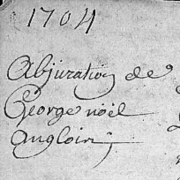 1704
Abjuration de
George noël
angloin;